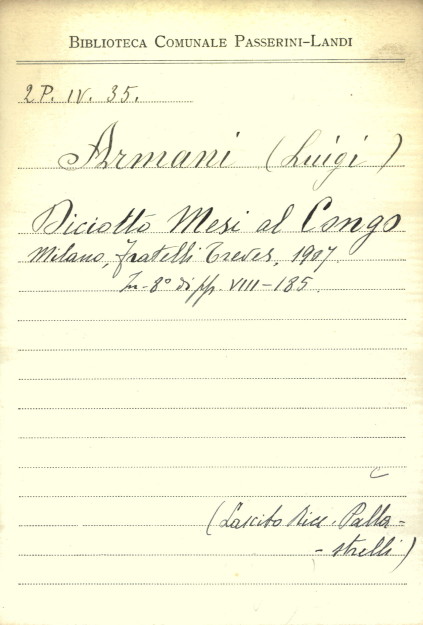 BIBLIOTECA COMUNALE PASSERINI-LANDI
2 P. IV. 35.
Armani (Luigi)
Diciotto Mesi al Congo
Milano, fratelli Treves, 1907.
In-8° di pp. VIII-185.
(Lascito Palla-
-strelli)